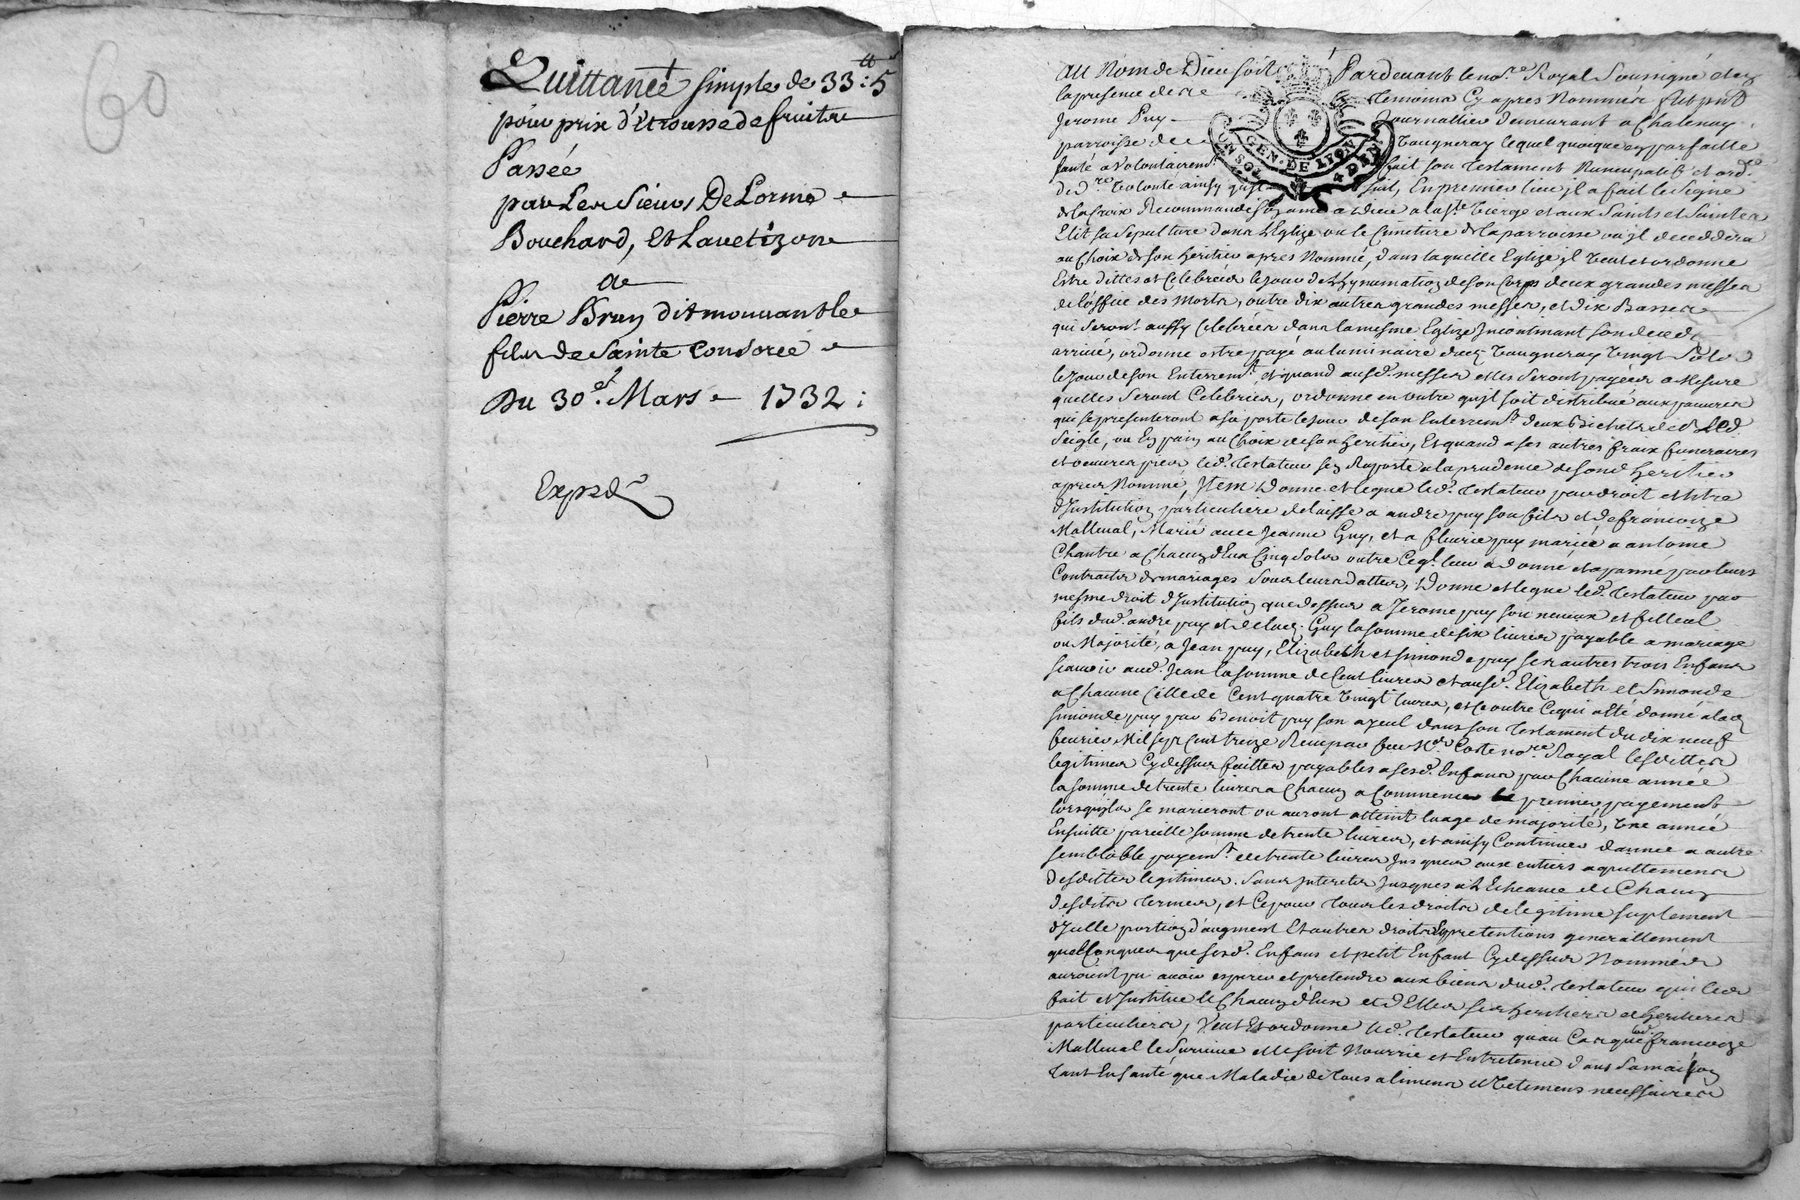 60
Quittance simple de 33 ₶: 5
pour prix d'étrousse de fruits
Passée
par Les Sieurs DeLorme
Bouchard, Et Lavetizon
a
Pierre Brun dit mouvant le
fils de Sainte Consorce
Du 30e. Mars 1732 :
Exped
Au Nom de Dieu soit Pardevant le nore. Royal Soussigné et en
la presence de temoins Cy apres Nommés fut pnt
Jerome Puy journallier demeurant a Chatenay
parroisse de Vaugneray lequel quoique en parfaitte
santé a volontairemt. fait son testament Nuncupatif et ord.
de dre. Volonté ainsy quil suit, En premier lieu jl a fait le Signe
de la Croix Recommandé son ame a Dieu a la ste. Vierge et aux Saints et Saintes
Elit sa Sepulture dans L'Eglize ou le Cimetiere de la parroisse ou jl deceddera
au Choix de son heritier apres Nommé, dans laquelle Eglize jl Veut et ordonne
Estre dittes et Celebrées le jour de L'Jnhumation de son Corps deux grandes messes
de l'office des Morts, outre dix autres grandes messes, et dix Basses
qui seront aussy Celebrées dans la mesme Eglize Jncontinant son deceds
arrivé, ordonne estre payé au luminaire dud. Vaugneray Vingt Sols
le Jour de son Enterremt., et quand ausd. messes elles seront payées a Mesure
quelles seront Celebrées, ordonne en outre quil soit distribué aux pauvres
qui se presenteront a sa porte le jour de son Enterremt. deux Bichets de Bled
Seigle, ou En pain au Choix de son heritier, Et quand a ses autres fraix funeraires
et oeuvres pies led. testateur s'en Raporte a la prudence de sond. heritier
apres Nommé, Jtem Donne et legue led. testateur par droit et titre
d'Jnstitution particuliere delaisse a andré puy son fils et de francoize
Malleval, Marié avec Jeanne Guy, et a fleurie puy mariée a antoine
Chantre a Chacun d'Eux Cinq Sols outre Ce ql. leur a donné et par leurs
Contracts de mariages sous leurs dattes, Donne et legue led. testateur par
mesme droit d'Jnstitution que dessus a Jerome puy son neveux et filleul
fils dud. andré puy et de lad. Guy la somme de six livres payable a mariage
ou Majorité, a Jean puy, Elizabeth et simonde puy ses autres trois Enfans
scavoir aud. Jean la somme de Cent livres et ausd. Elizabeth et Simonde
a Chacune Celle de Cent quatre Vingt livres, et Ce outre Cequi a Eté donné a lad.
simonde puy par Benoit puy son ayeul dans son testament du dix neuf
fevrier Mil sept Cent treize Receu par feu Me. Coste nore. Royal lesdittes
legitimes Cydessus faittes payables a sesd. Enfans par Chacune année
la somme de trente livres a Chacun a Commencer le premier payement
lorsquils se marieront ou auront atteint luage de majorité, Une année
Ensuitte pareille somme de trente livres, et ainsy Continuer d'année a autre
semblable payemt. de trente livres jusques aux entiers aquittements
desdittes legitimes. Sans jnterets jusques a L'Echeance de Chacun
desdits termes, et Ce pour tous les droits de legitime suplement
d'Jcelle portion d'augment Et autres droits Et pretentions generallement
quelConques que sesd. Enfans et petit Enfant Cydessus Nommés
auroient pu avoir esperer et pretendre aux biens dud. testateur qui les
fait et Jnstitue le Chacun d'Eux et d'Elles ses heritiers et heritieres
particuliers, Veut Et ordonne led. testateur quau Cas que lad. francoize
Malleval le Survive elle soit Nourrie et Entretenue dans sa maison
tant En santé que Maladie de tous alimens et Vetemens necessaires